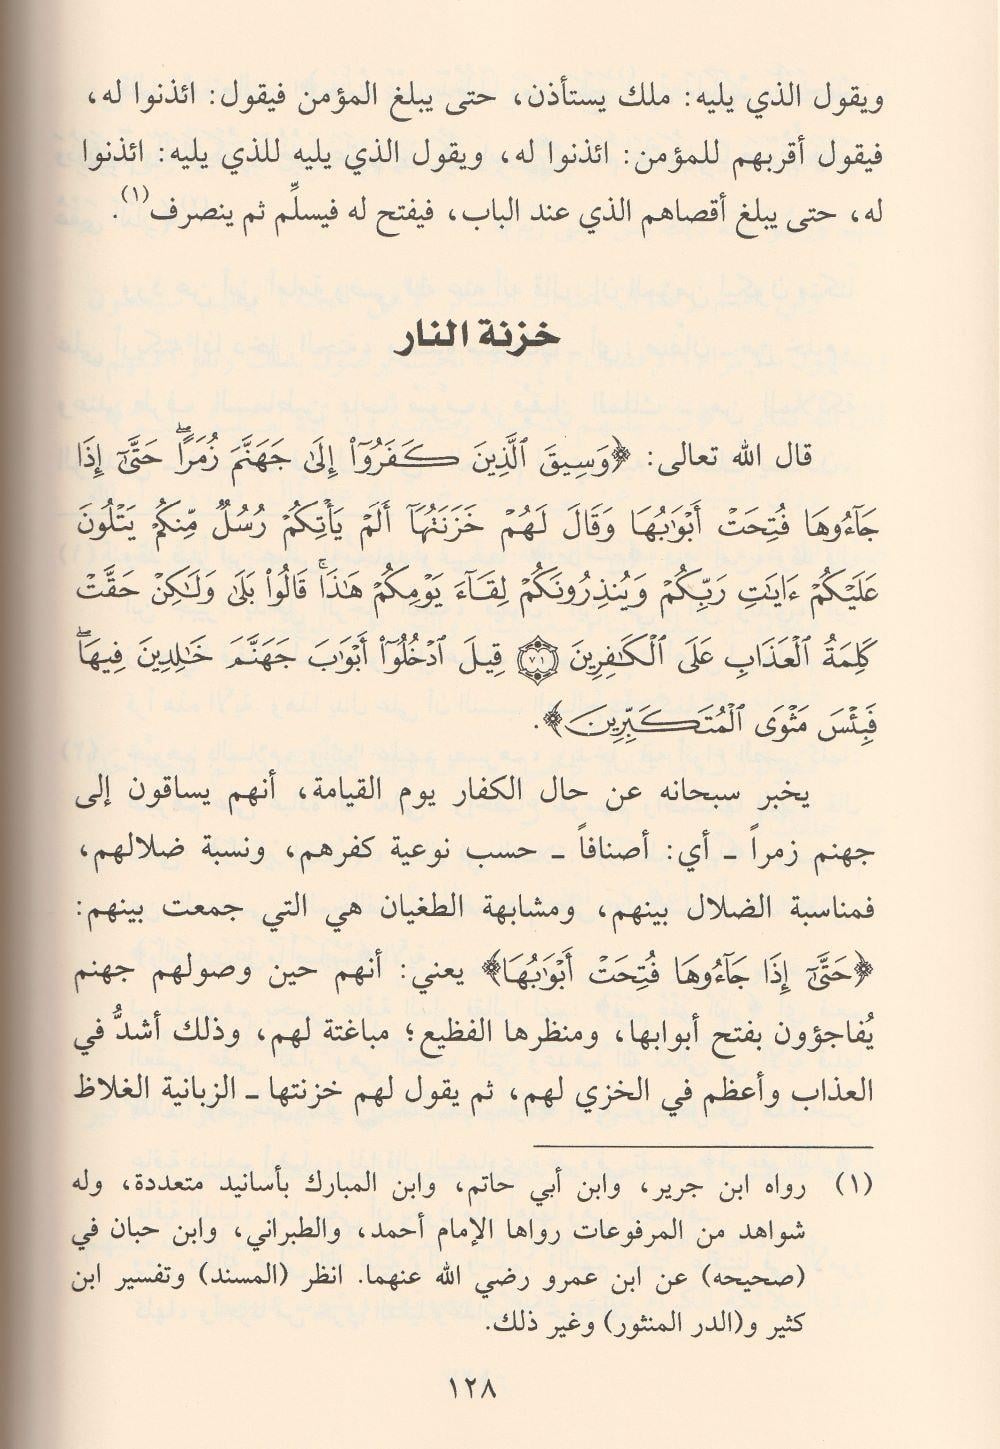 ويقول الذي يليه: ملك يستأذن، حتى يبلغ المؤمن فيقول: ائذنوا له،
فيقول أقربهم للمؤمن: ائذنوا له، ويقول الذي يليه للذي يليه: ائذنوا
له، حتى يبلغ أقصاهم الذي عند الباب، فيفتح له فيسلِّم ثم ينصرف(١).
خزنة النار
قال الله تعالى: ﴿وَسِيقَ ٱلَّذِينَ كَفَرُوٓا۟ إِلَىٰ جَهَنَّمَ زُمَرًا ۖ حَتَّىٰٓ إِذَا
جَآءُوهَا فُتِحَتْ أَبْوَٰبُهَا وَقَالَ لَهُمْ خَزَنَتُهَآ أَلَمْ يَأْتِكُمْ رُسُلٌ مِّنكُمْ يَتْلُونَ
عَلَيْكُمْ ءَايَٰتِ رَبِّكُمْ وَيُنذِرُونَكُمْ لِقَآءَ يَوْمِكُمْ هَٰذَا ۚ قَالُوا۟ بَلَىٰ وَلَٰكِنْ حَقَّتْ
كَلِمَةُ ٱلْعَذَابِ عَلَى ٱلْكَٰفِرِينَ ٧١ قِيلَ ٱدْخُلُوٓا۟ أَبْوَٰبَ جَهَنَّمَ خَٰلِدِينَ فِيهَا ۖ
فَبِئْسَ مَثْوَى ٱلْمُتَكَبِّرِينَ﴾.
يخبر سبحانه عن حال الكفار يوم القيامة، أنهم يساقون إلى
جهنم زمراً ـ أي: أصنافاً ـ حسب نوعية كفرهم، ونسبة ضلالهم،
فمناسبة الضلال بينهم، ومشابهة الطغيان هي التي جمعت بينهم:
﴿حَتَّىٰٓ إِذَا جَآءُوهَا فُتِحَتْ أَبْوَٰبُهَا﴾ يعني: أنهم حين وصولهم جهنم
يُفاجؤون بفتح أبوابها، ومنظرها الفظيع؛ مباغتة لهم، وذلك أشدُّ في
العذاب وأعظم في الخزي لهم، ثم يقول لهم خزنتها ـ الزبانية الغلاظ
(١) رواه ابن جرير، وابن أبي حاتم، وابن المبارك بأسانيد متعددة، وله
شواهد من المرفوعات رواها الإمام أحمد، والطبراني، وابن حبان في
(صحيحه) عن ابن عمرو رضي الله عنهما. انظر (المسند) وتفسير ابن
كثير و(الدر المنثور) وغير ذلك.
١٢٨